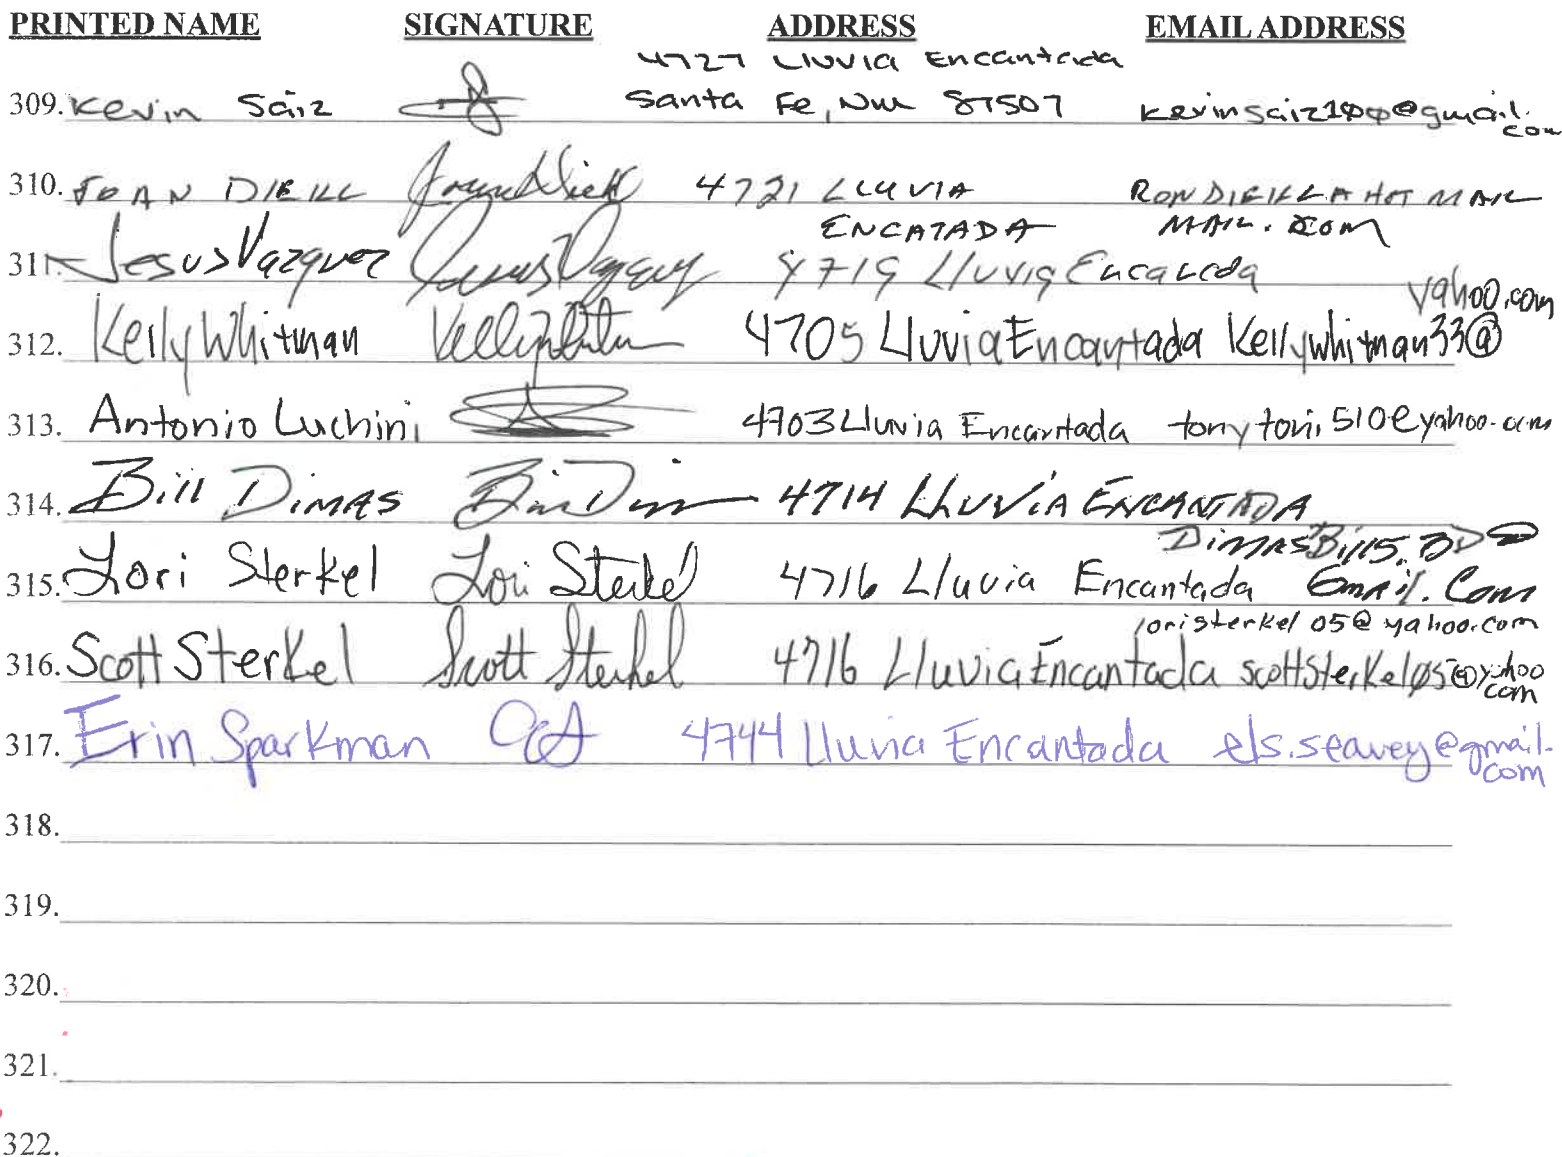 PRINTED NAME SIGNATURE ADDRESS EMAIL ADDRESS
4727 Lluvia Encantada
309. Kevin Saiz Santa Fe, NM 87507 kevinsaiz100@gmail.
com
310. JOAN DIEKL 4721 LLUVIA RONDIEKLLA HOT MAIL
ENCATADA MAIL.COM
311. Jesus Vazquez Jesus Vazquez 4719 Lluvia
yahoo.com
312. Kelly Whitman 4705 Lluvia Encantada Kellywhitman33@
313. Antonio Luchini 4703 Lluvia Encantada tonytoni510@yahoo.com
314. Bill DIMAS 4714 LLUVIA ENCANTADA
DIMASBill5.BD
315. Lori Sterkel Lori Sterkel 4716 Lluvia Encantada Gmail.Com
loristerkel05@yahoo.com
316. Scott Sterkel Scott Sterkel 4716 Lluvia Encantada scottsterkel05@yahoo
com
317. Erin Sparkman 4744 Lluvia Encantada els.seavey@gmail.
com
318.
319.
320.
321.
322.